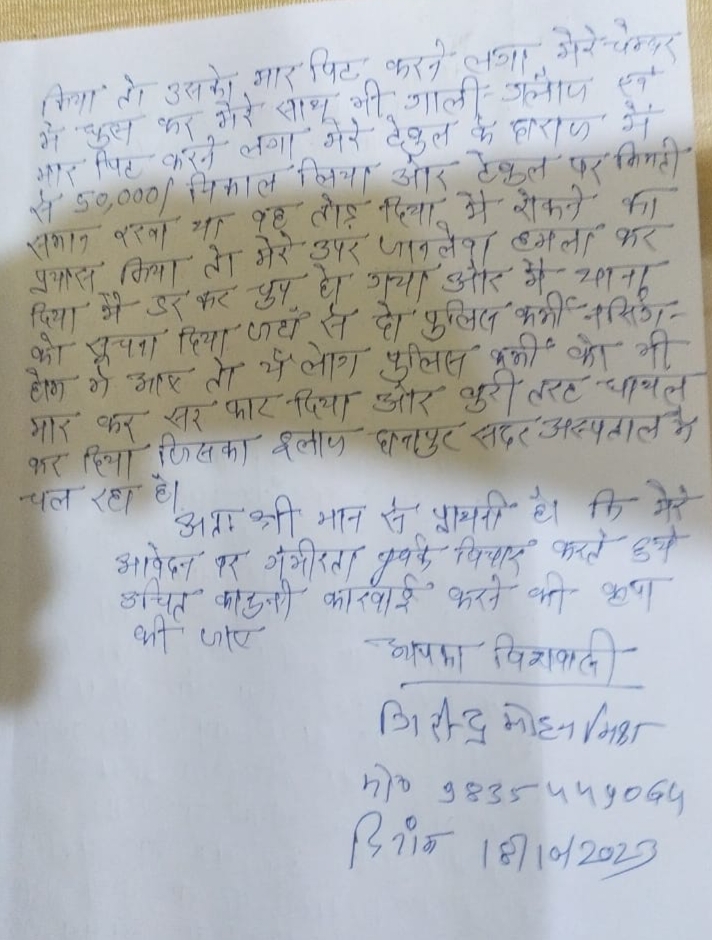 किया तो उसको मार पिट करने लगा मेरे चेम्बर
मे घुस कर मेरे साथ भी गाली-गलौज एवं
मार पिट करने लगा मेरे टेबुल के दाराज में
से 50,000/ निकाल लिया और टेबुल पर किमती
समान रखा था वह तोड़ दिया मै रोकने का
प्रयास किया तो मेरे उपर जानलेवा हमला कर
दिया मैं डर कर चुप हो गया और मै थाना
को सूचना दिया जहाँ से दो पुलिस कर्मी नर्सिंग-
होम मे आए तो ये लोग पुलिस कर्मी को भी
मार कर सर फार दिया और बुरी तरह घायल
कर दिया जिसका इलाज दानापुर सदर अस्पताल मे
चल रहा है।
अतः श्री मान से प्रार्थना है। कि मेरे
आवेदन पर गंभीरता पूर्वक विचार करते हुये
उचित कानुनी कारवाई करने की कृपा
की जाए
आपका विश्वासी
जितेन्द्र मोहन मिश्रा
मो० 9835449064
दिनांक 18/10/2023